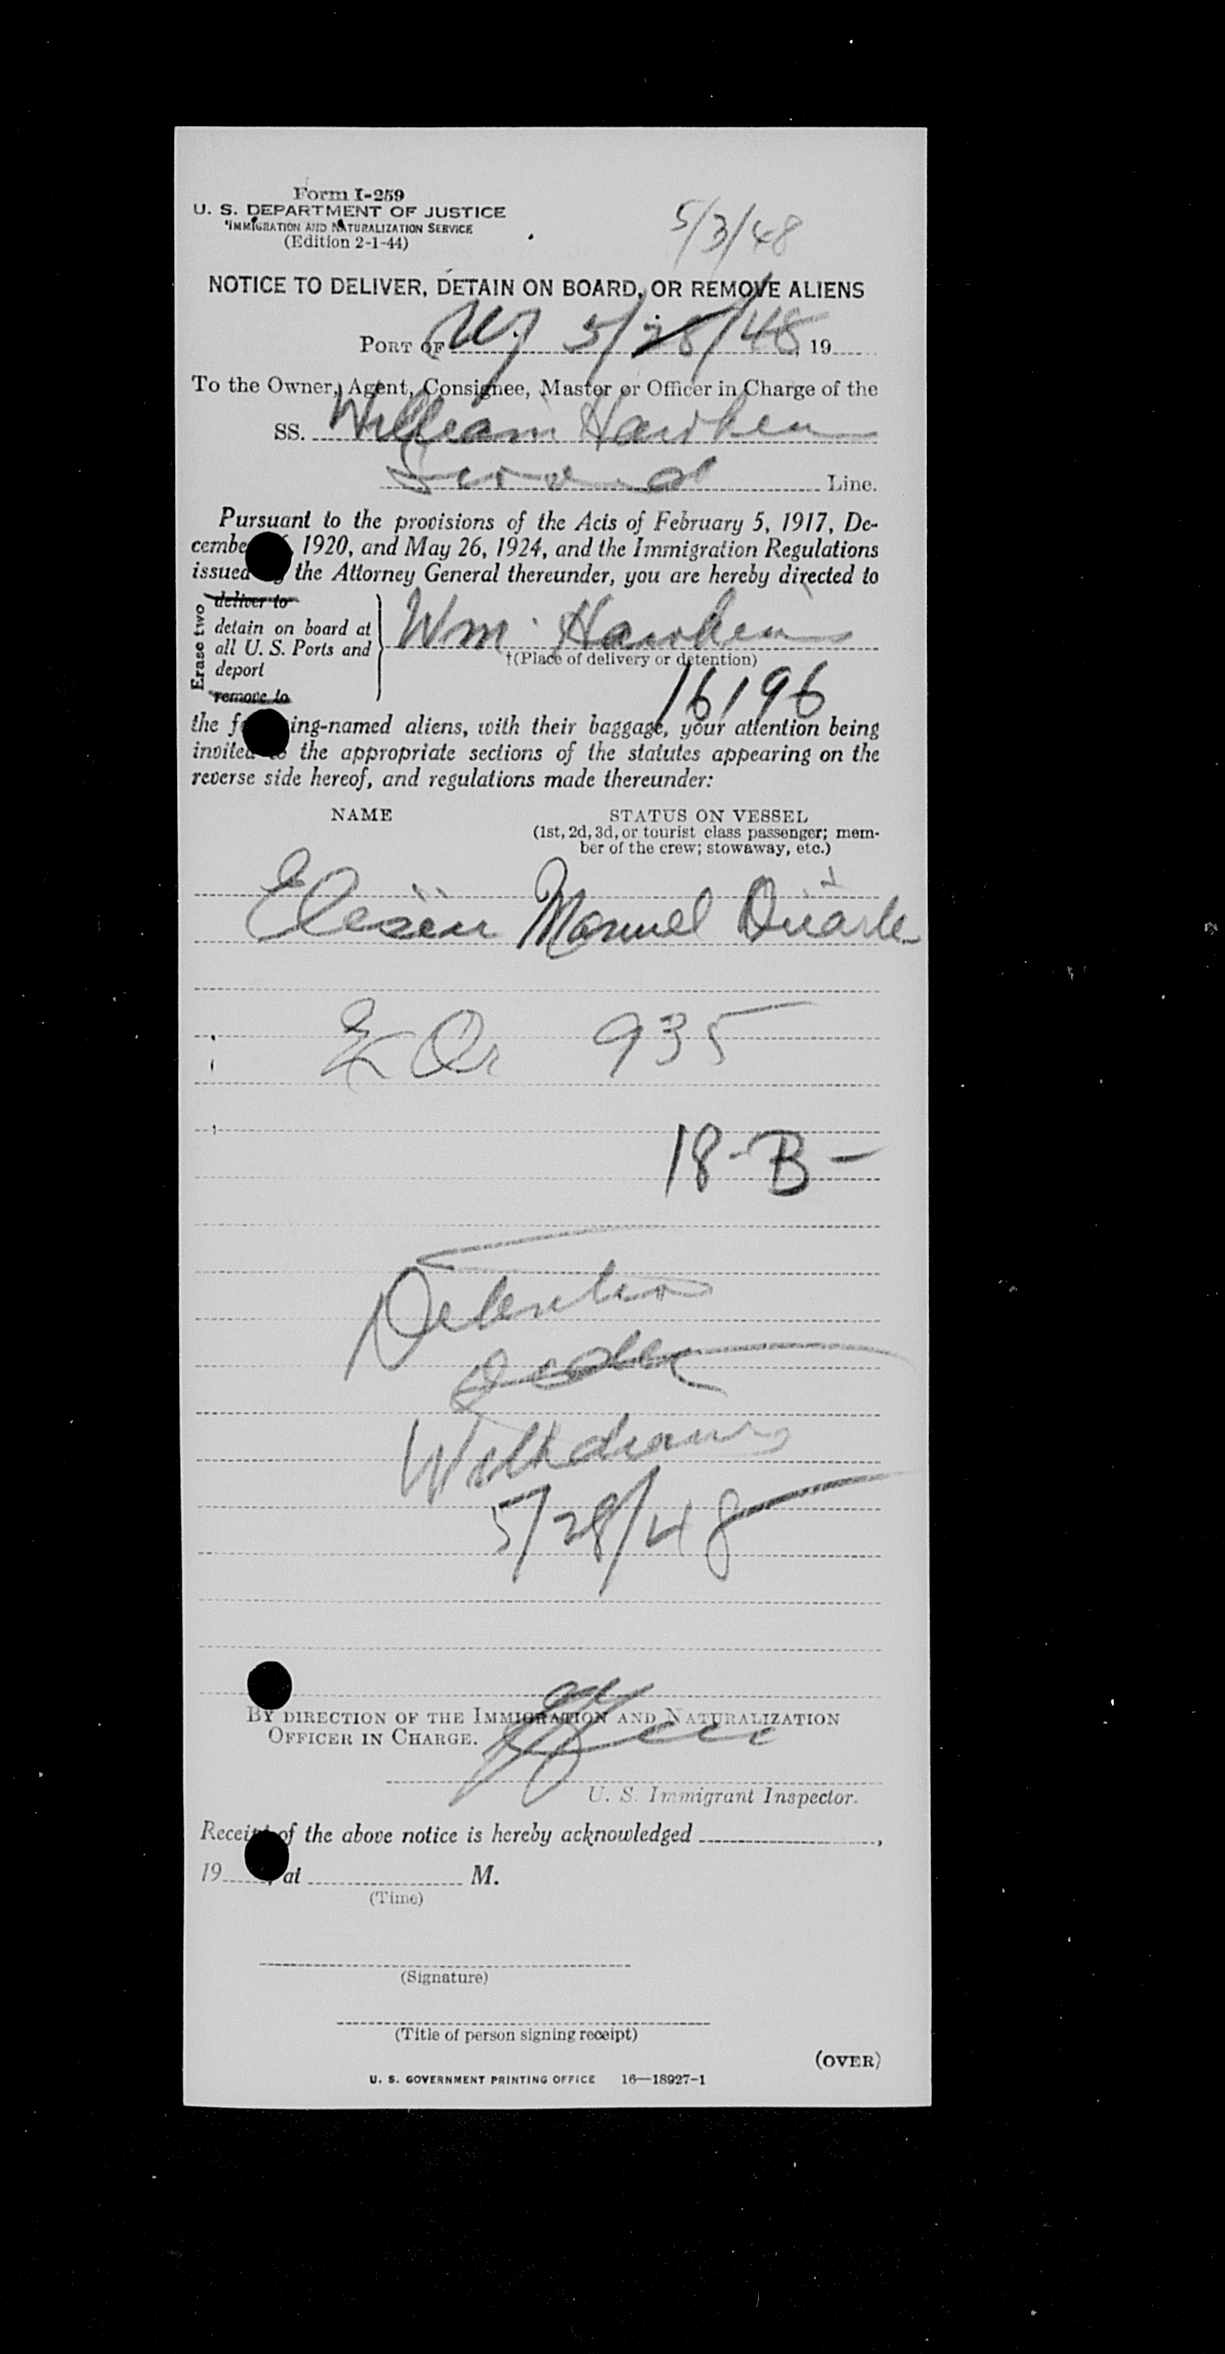 Form I-259
U. S. DEPARTMENT OF JUSTICE
IMMIGRATION AND NATURALIZATION SERVICE
(Edition 2-1-44)
5/3/48
NOTICE TO DELIVER, DETAIN ON BOARD, OR REMOVE ALIENS
PORT OF 5/28/48, 19
To the Owner, Agent, Consignee, Master or Officer in Charge of the
SS. William
Line.
Pursuant to the provisions of the Acts of February 5, 1917, De-
cembe 1920, and May 26, 1924, and the Immigration Regulations
issued the Attorney General thereunder, you are hereby directed to
Erase two
deliver to
detain on board at
all U. S. Ports and
deport
remove to
Wm.
†(Place of delivery or detention)
16196
the f ing-named aliens, with their baggage, your attention being
invited the appropriate sections of the statutes appearing on the
reverse side hereof, and regulations made thereunder:
NAME
STATUS ON VESSEL
(1st, 2d, 3d, or tourist class passenger; mem-
ber of the crew; stowaway, etc.)
Manuel Duarte
935
18-B-
Detention
Order
Withdrawn
5/28/48
BY DIRECTION OF THE IMMIGRATION AND NATURALIZATION
OFFICER IN CHARGE.
U. S. Immigrant Inspector.
Receipt of the above notice is hereby acknowledged ,
19 , at M.
(Time)
(Signature)
(Title of person signing receipt)
(OVER)
U. S. GOVERNMENT PRINTING OFFICE 16—18927-1